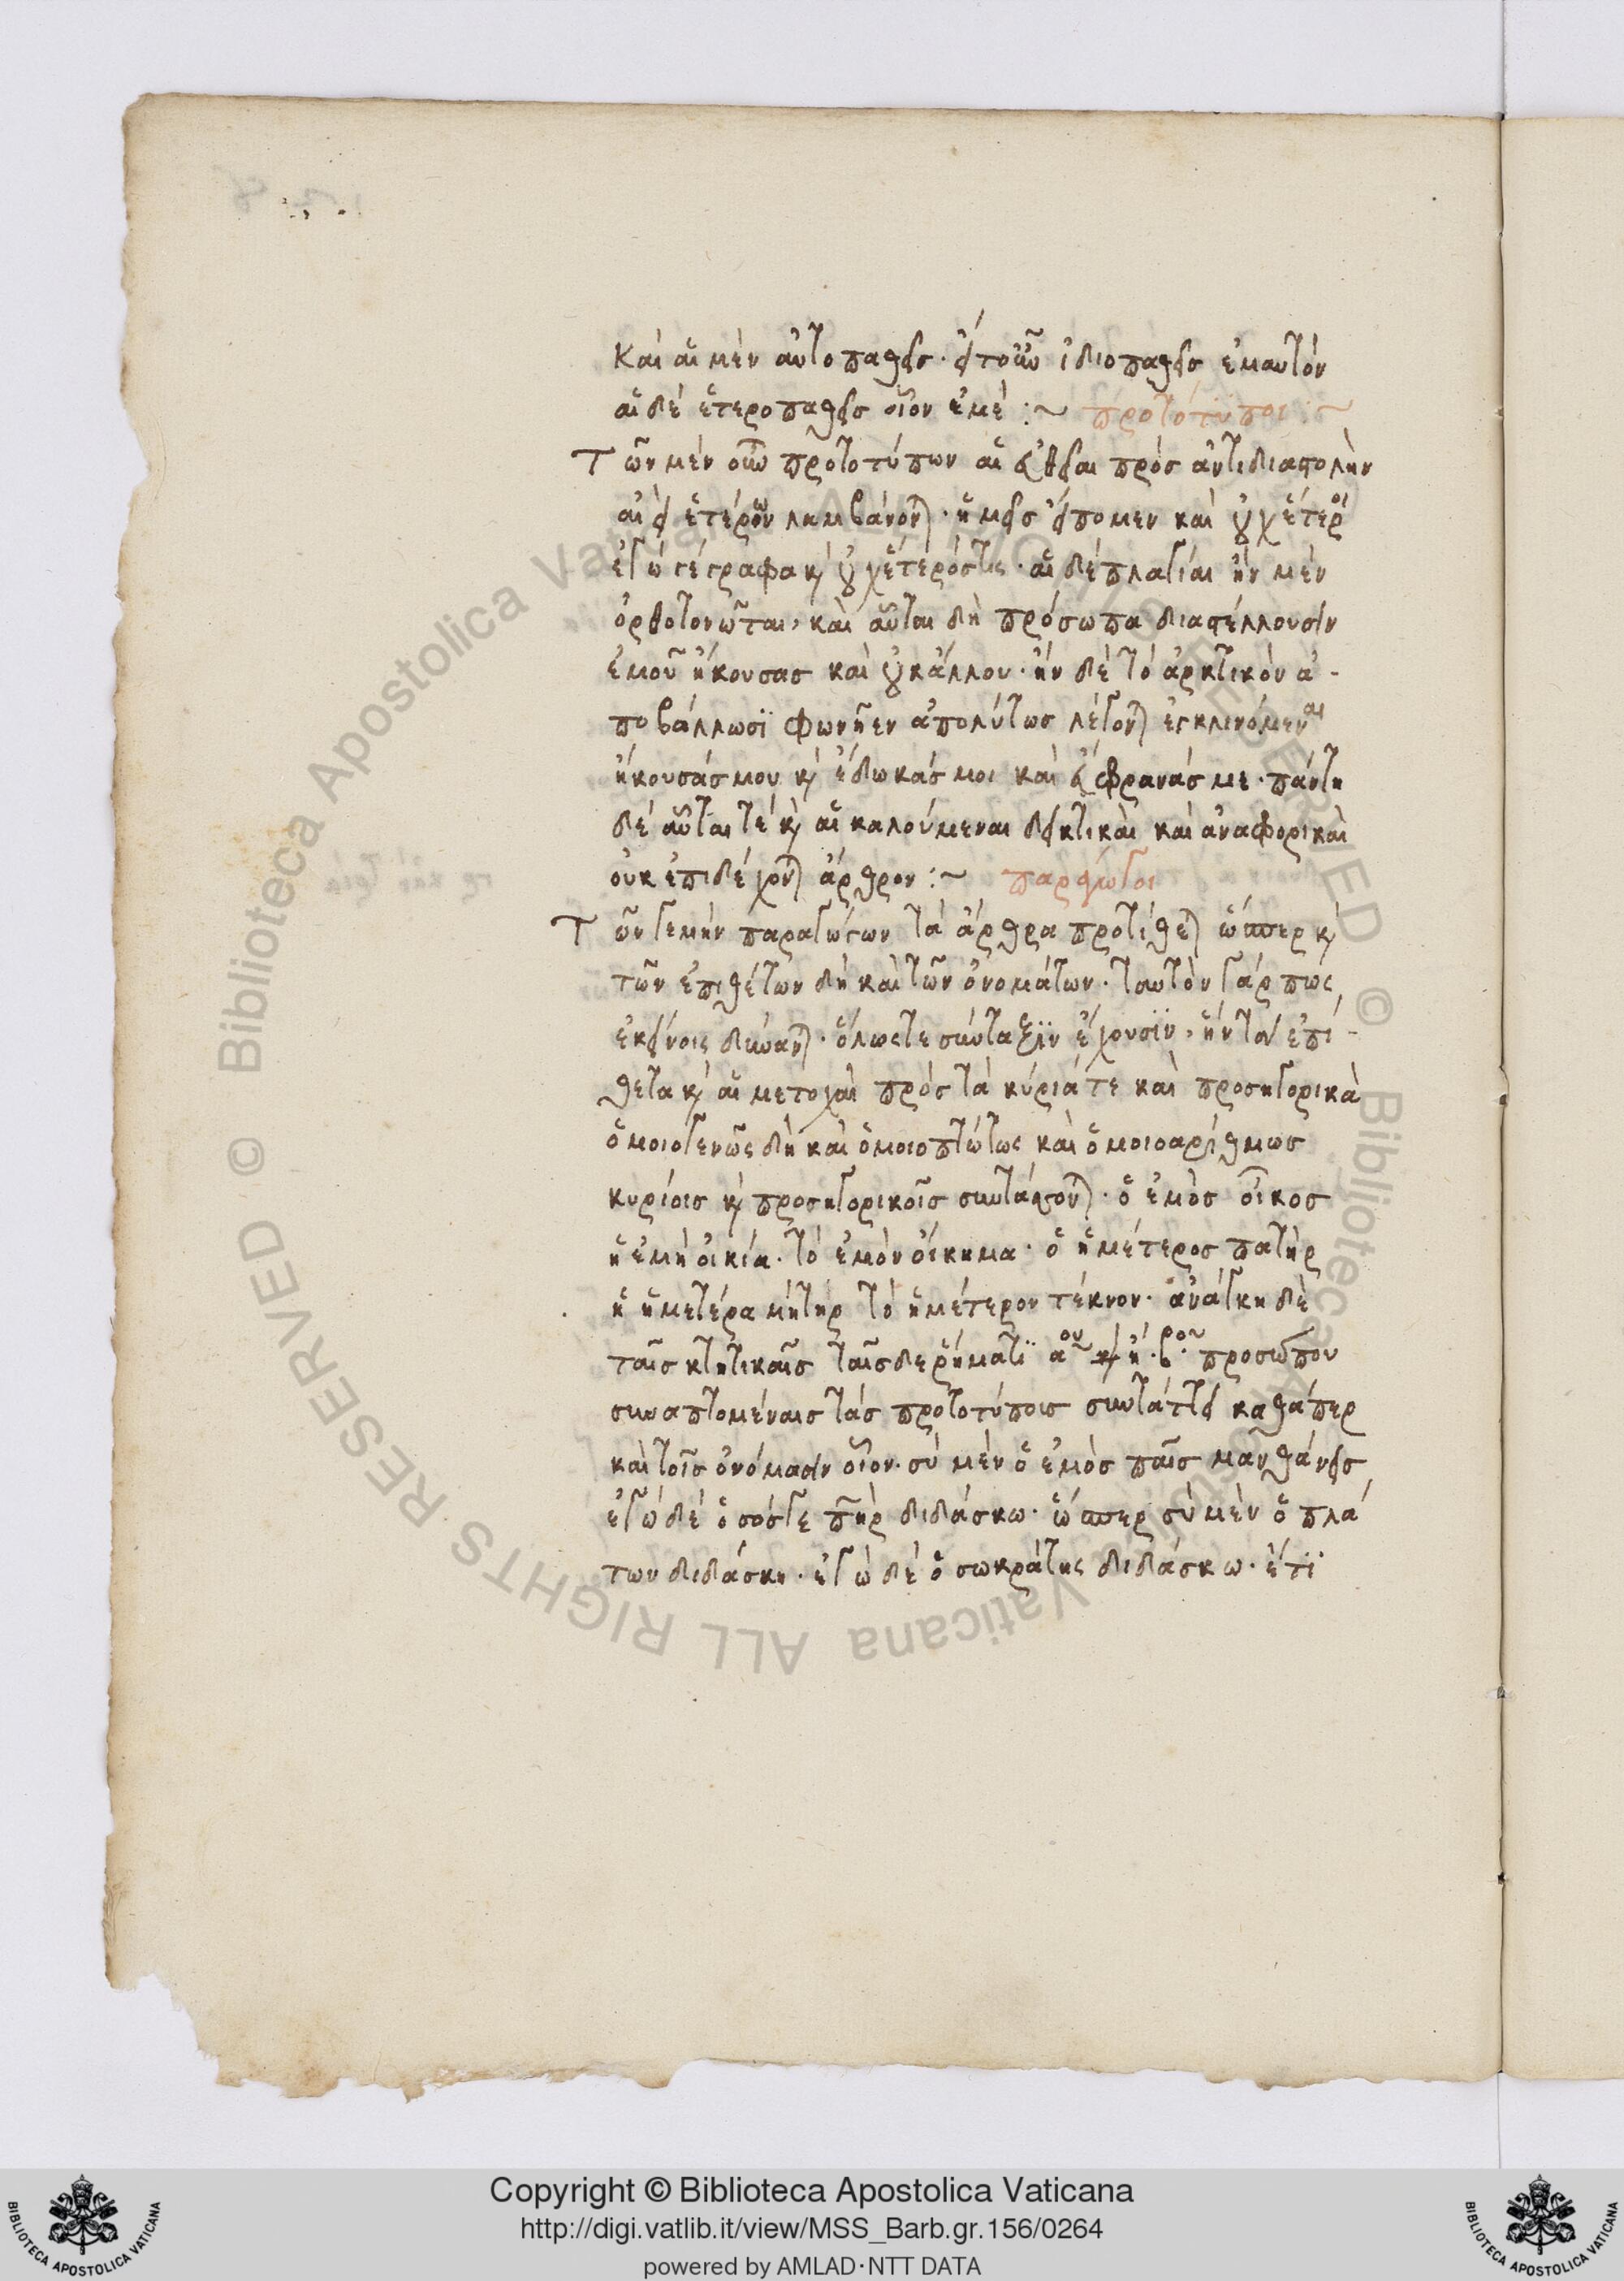 Καὶ αἱ μὲν αὐτοπαθεῖς· εἴτουν ἰδιοπαθεῖς ἐμαυτόν
αἱ δὲ ἑτεροπαθεῖς οἷον ἐμέ :~ πρωτότυποι :~
Τῶν μὲν οὖν πρωτοτύπων αἱ εὐθεῖαι πρὸς ἀντιδιαστολὴν
ἀεὶ ἑτέρων λαμβάνονται· ἡμεῖς εἴπομεν καὶ οὐχ ἕτεροι
ἐγὼ γέγραφα καὶ οὐχ ἕτερός τις· αἱ δὲ πλάγιαι ἢν μὲν
ὀρθοτονῶται, καὶ αὗται δὴ πρόσωπα διαστέλλουσιν
ἐμοῦ ἤκουσας καὶ οὐκ ἄλλου· ἢν δὲ τὸ ἀρκτικὸν ἀ-
ποβάλλωσϊ φωνῆεν ἀπολύτως λέγονται ἐγκλινόμεναι
ἤκουσάς μου καὶ ἔδωκάς μοι καὶ εὔφρανάς με· πάντη
δὲ αὗται τὲ καὶ αἱ καλούμεναι δεικτικαὶ καὶ ἀναφορικαὶ
οὐκ ἐπιδέχονται ἄρθρον :~ παράγωγοι
Τῶν γε μὴν παραγώγων τὰ ἄρθρα προτίθεται ὥσπερ καὶ
τῶν ἐπιθέτων δὴ καὶ τῶν ὀνομάτων· ταυτὸν γάρ πως
ἐκείνοις δύνανται· ὅλως τε σύνταξϊν ἔχουσϊν, ἣν τὰ ἐπί-
θετα καὶ αἱ μετοχαὶ πρὸς τὰ κύριά τε καὶ προσηγορικὰ
ὁμοιογενῶς δὴ καὶ ὁμοιοπτώτως καὶ ὁμοιοαρίθμως
κυρίοις καὶ προσηγορικοῖς συντάσσονται· ὁ ἐμὸς οἶκος
ἡ ἐμὴ οἰκία· τὸ ἐμὸν οἴκημα· ὁ ἡμέτερος πατὴρ
ἡ ἡμετέρα μήτηρ τὸ ἡμέτερον τέκνον· ἀνάγκη δὲ
ταῖς κτητικαῖς ταῖς δε ῥήματϊ αου ἢ βου προσώπου
συναπτομέναις τὰς πρωτοτύποις συντάττει καθάπερ
καὶ τοῖς ὀνόμασιν οἷον· σὺ μὲν ὁ ἐμὸς παῖς μανθάνεις,
ἐγὼ δὲ ὁ σός γε πηρ διδάσκω· ὥσπερ σὺ μὲν ὁ πλά
των διδάσκη· ἐγὼ δὲ ὁ σωκράτης διδάσκω· ἔτϊ